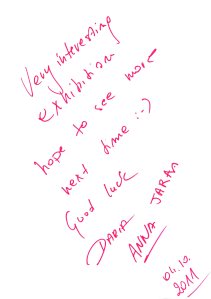 Very interesting
exhibition
hope to see more
next time :-)
Good luck
DARIA
ANNA JARAN
04.10.
2011